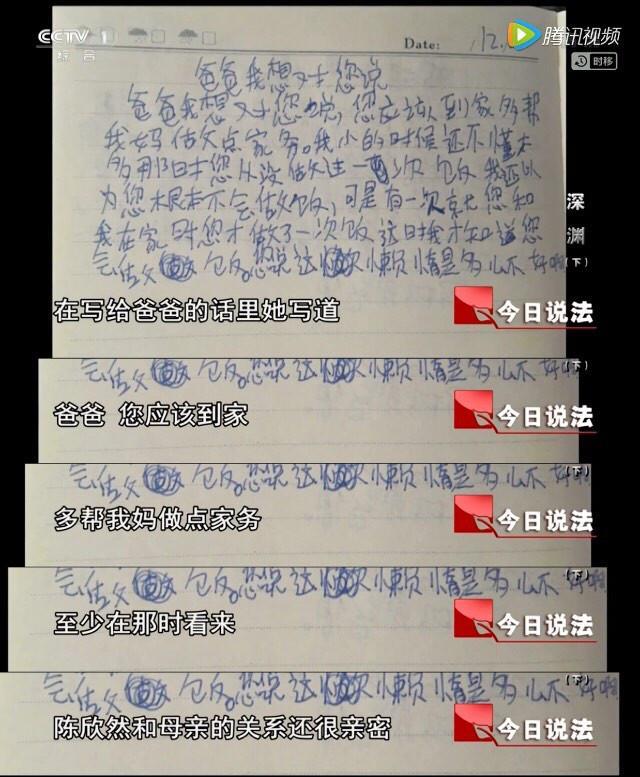 CCTV 1
综合
腾讯视频
时移
Date: 12.
爸爸我想对您说
爸爸我想对您说,您应该到家多帮
我妈做点家务。我小的时候还不懂
那时您从没做过一次饭 我还以
为您根本不会做饭,可是有一次就您和
我在家时您才做了一次饭这时我才知道您
会做饭。您说这懒惰是多么不好啊
深渊
(下)
在写给爸爸的话里她写道
今日说法
会做饭。您说这懒惰是多么不好啊
(下)
爸爸 您应该到家
今日说法
会做饭。您说这懒惰是多么不好啊
(下)
多帮我妈做点家务
今日说法
会做饭。您说这懒惰是多么不好啊
(下)
至少在那时看来
今日说法
会做饭。您说这懒惰是多么不好啊
(下)
陈欣然和母亲的关系还很亲密
今日说法